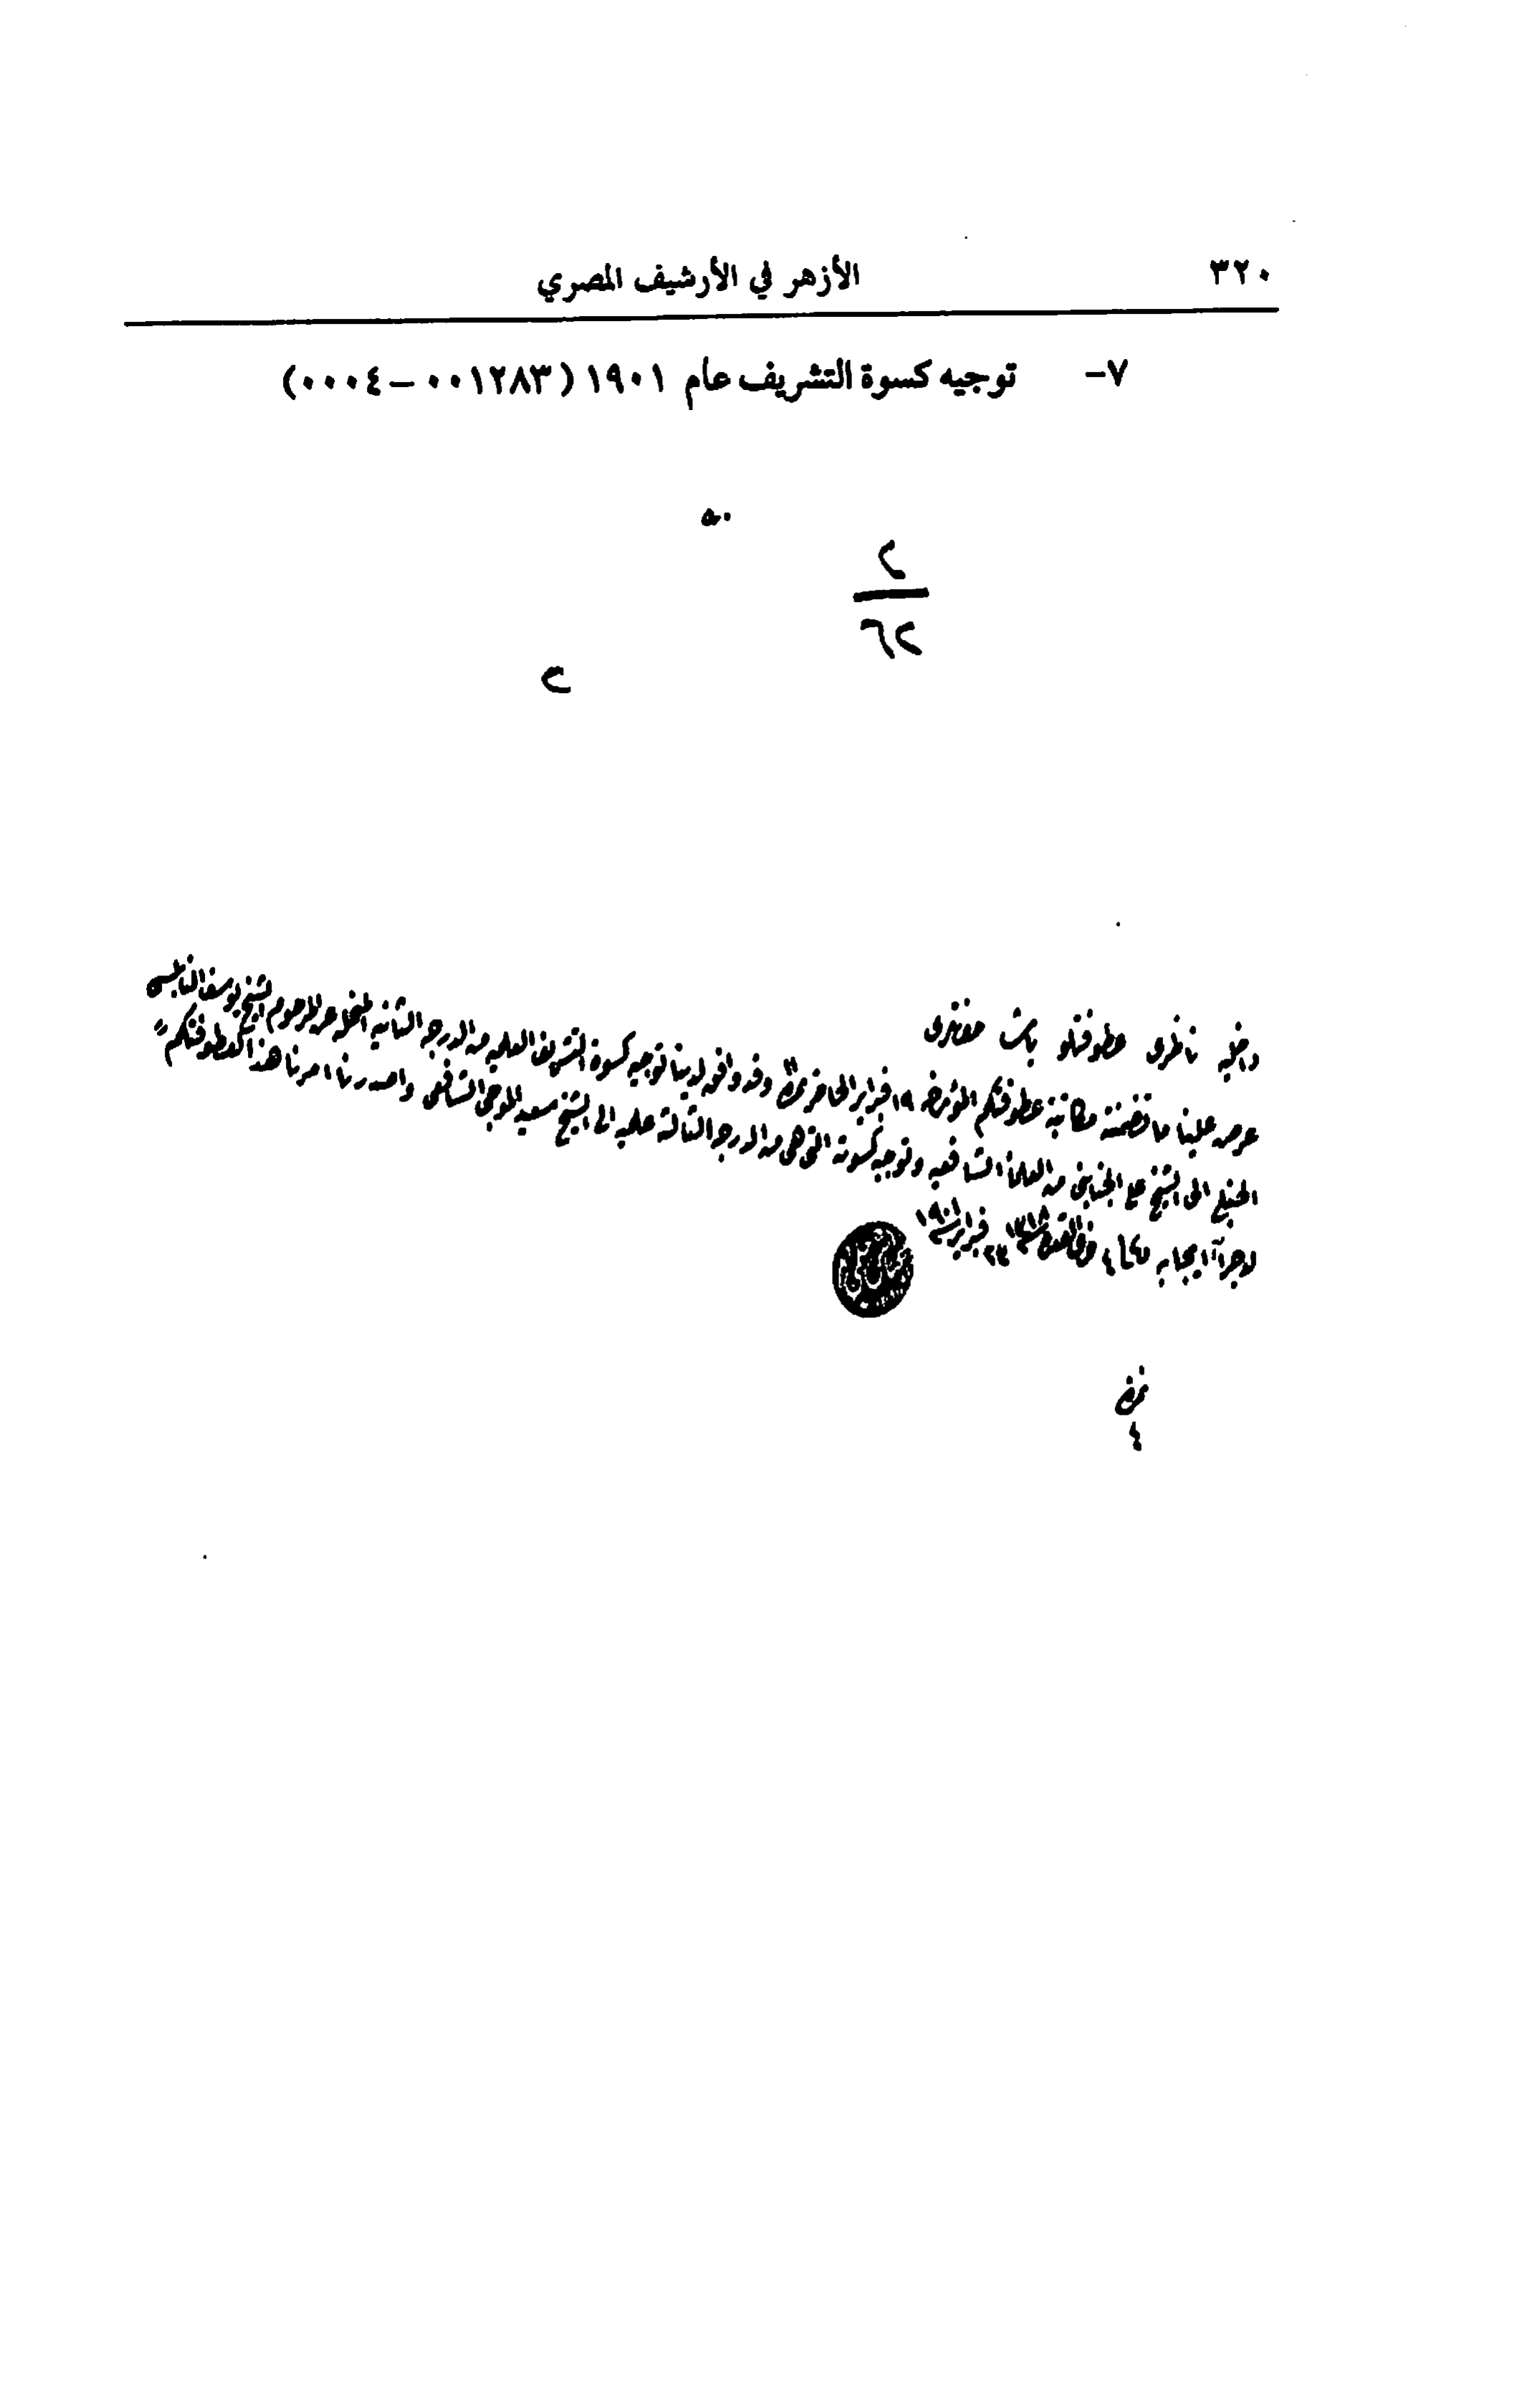 ٣٢٠
الأزهر في الأرشيف المصري
٧- توجيه كسوة التشريف عام ١٩٠١ (٠٠١٢٨٣-٠٠٠٤)
٥٠
٢
٦٢
٢
داخليه ناظرى عطوفتلو باشا حضرتلرى
عرض علينا ما تضمنته مكاتبة عطوفتكم المؤرخه ١٩ فبراير الحاضر وقد وافق لدينا توجيه كسوة التشريف العلميه من الدرجه الثانيه المنحله عن المرحوم الشيخ يوسف النابلسى
الحنبلى الى الشيخ على الجناينى من العلماء الشافعيه وتوجيه كسوته التى هى من الدرجه الثالثة علميه الى الشيخ سعيد الموجى الشافعى واصدرنا امرنا هذا لعطوفتكم
لاجرآء ايجابه ٤ ذى القعده سنة ١٣١٨ فبراير سنة ١٩٠١
نمرة
٤